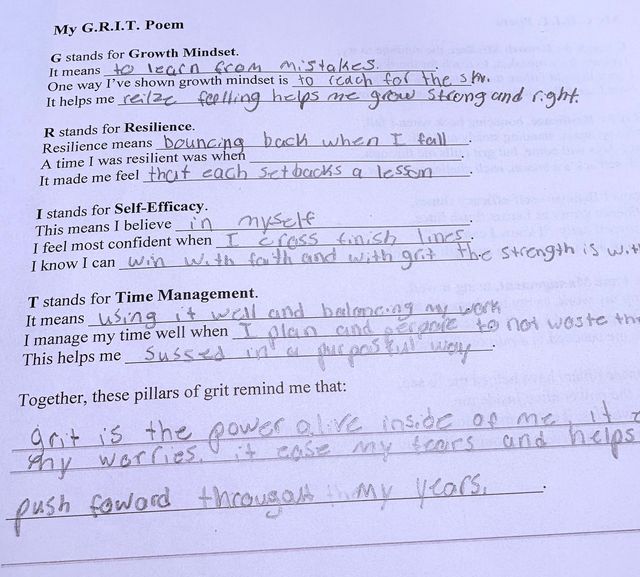 My G.R.I.T. Poem
G stands for Growth Mindset.
It means to learn from mistakes.
One way I've shown growth mindset is to reach for the sky.
It helps me reilze faelling helps me grow strong and right.
R stands for Resilience.
Resilience means bouncing back when I fall.
A time I was resilient was when
It made me feel that each setbacks a lesson.
I stands for Self-Efficacy.
This means I believe in myself
I feel most confident when I cross finish lines.
I know I can win with faith and with grit the strength is
T stands for Time Management.
It means using it well and balancing my work
I manage my time well when I plan and to not waste
This helps me sussed in a way.
Together, these pillars of grit remind me that:
grit is the power alive inside of me, it
my worries. it ease my fears and helps
push foward my years.